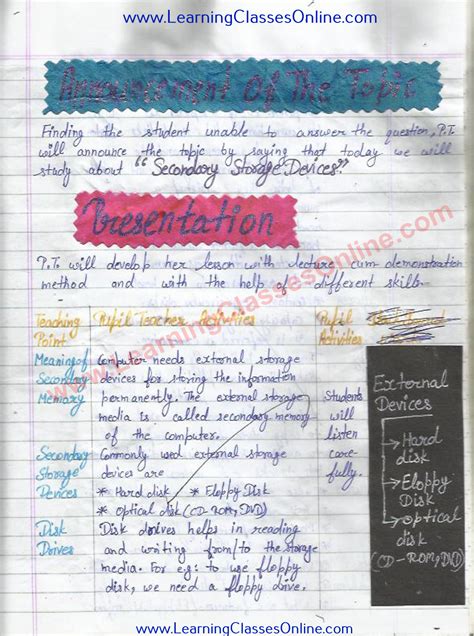 www.LearningClassesOnline.com
Announcement Of The Topic
Finding the student unable to answer the question, P.T.
will announce the topic by saying that today we will
study about "Secondary Storage Devices".
Presentation
P.T. will develop her lesson with lecture cum demonstration
method and with the help of different skills.
www.LearningClassesOnline.com
Teaching Point
Pupil Teacher Activities
Pupil Activities
Meaning of Secondary Memory
Computer needs external storage
devices for storing the information
permanently. The external storage
media is called secondary memory
of the computer.
Students
will
listen
care-
fully.
Secondary Storage Devices
Commonly used external storage
devices are
* Hard disk * Floppy Disk
* Optical disk (CD-ROM, DVD)
Disk Drives
Disk drives helps in reading
and writing from/to the storage
media. For e.g.: to use floppy
disk, we need a floppy drive.
External
Devices
Hard
disk
Floppy
Disk
optical
disk
(CD-ROM, DVD)
www.LearningClassesOnline.com